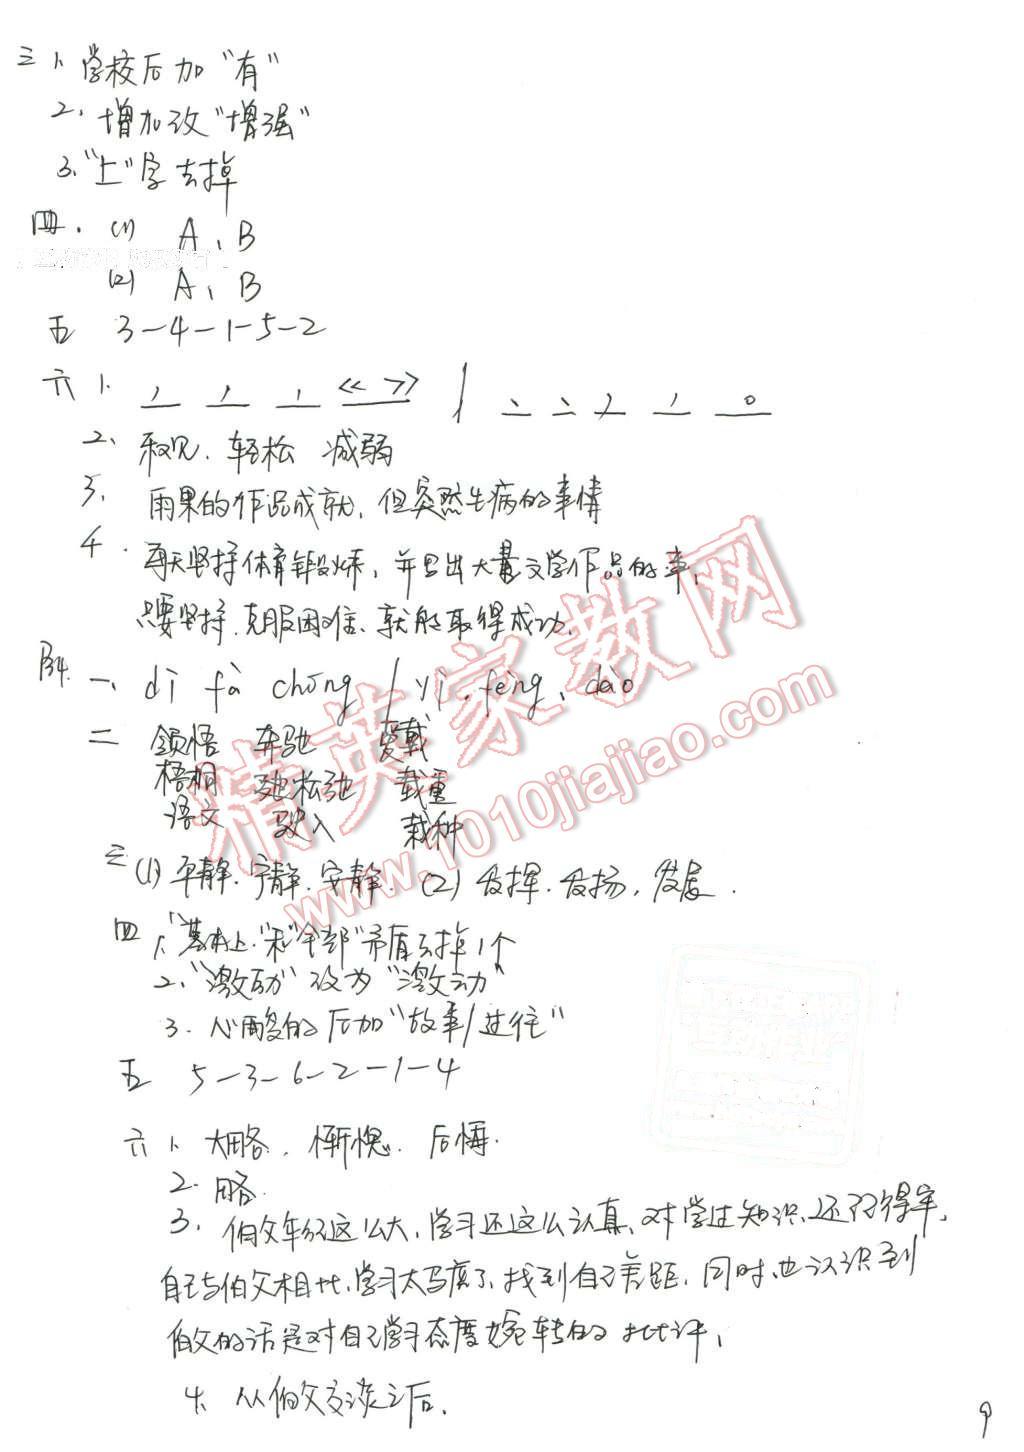 三 1、学校后加"有"
2、增加改"增强"
3、"上"字去掉
四、(1) A、B
(2) A、B
五 3-4-1-5-2
六 1. ， ， ， 《 》 / 、 、 ， ， 。
2、 轻松 减弱
3、雨果的作品成就,但突然生病的事情
4. 每天坚持体育锻炼,并写出大量文学作品的事,
只要坚持,克服困难、就能取得成功.
P34. 一、dī fà chōng / yì, fèng, dào
二 领悟 奔驰 爱戴
梧桐 松弛 载重
语文 驶入 栽种
三 (1) 平静.宁静.安静. (2) 发挥.发扬,发展.
四 1、"基本上"和"全部"矛盾去掉1个
2、"激励"改为"激动"
3. 心酸的后加"故事/过往"
五 5-3-6-2-1-4
六 1. 大略, 惭愧. 后悔.
2. 略.
3. 伯父年纪这么大,学习还这么认真,对学过知识,还记得牢,
自己与伯父相比,学习太马虎了,找到自己差距,同时,也认识到
伯父的话是对自己学习态度婉转的批评,
4、从伯父交谈之后.
9
精英家教网
www.1010jiajiao.com